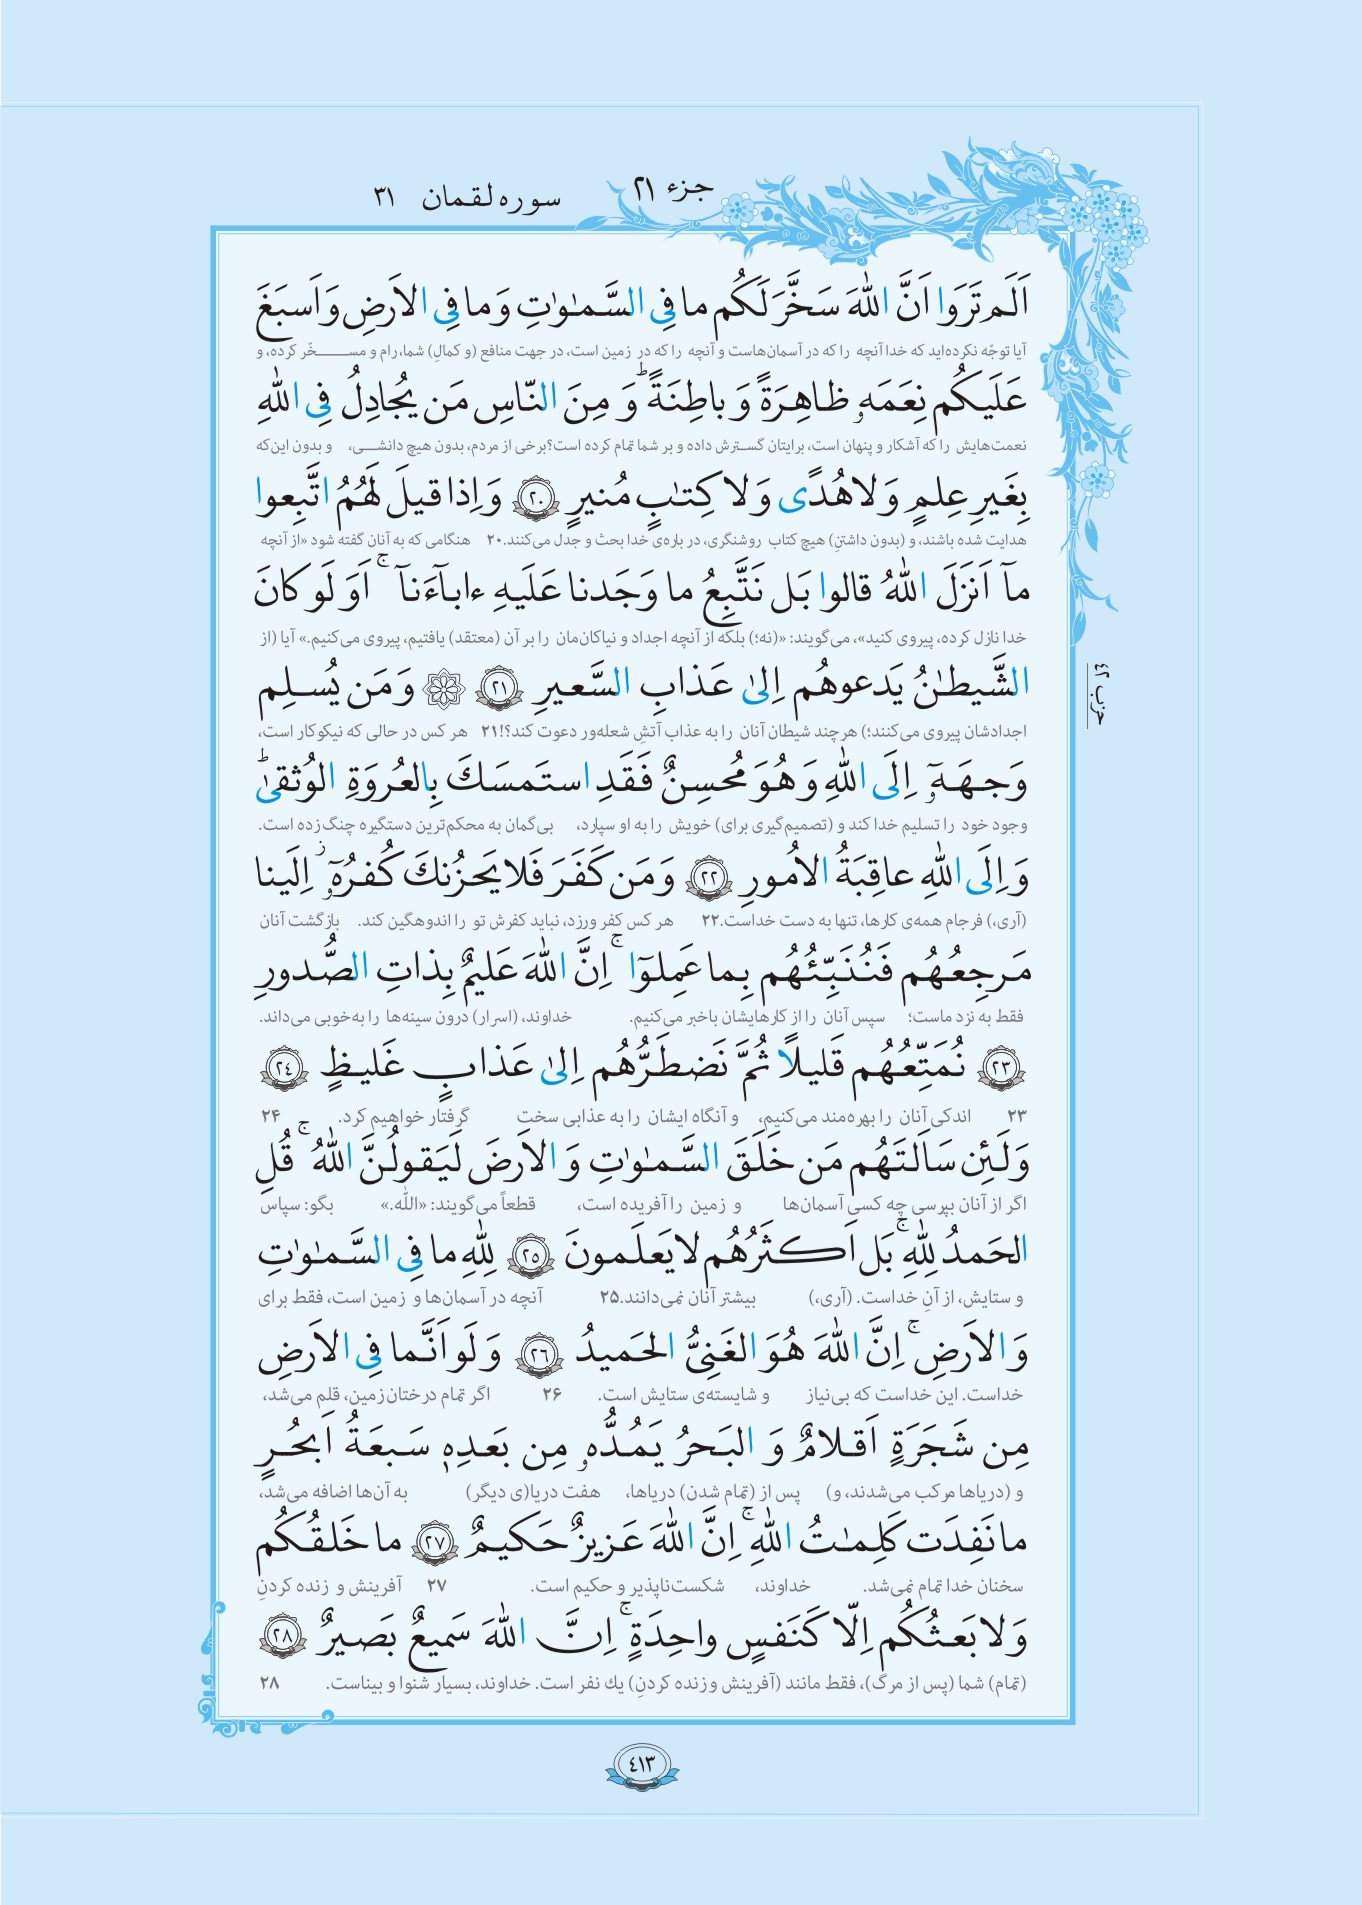 جزء ٢١
سوره لقمان ٣١
اَلَم تَرَوا اَنَّ اللّٰهَ سَخَّرَ لَكُم ما فِى السَّمٰوٰتِ وَ ما فِى الاَرضِ وَ اَسبَغَ
آیا توجّه نکرده‌اید که خدا آنچه را که در آسمان‌هاست و آنچه را که در زمین است، در جهت منافع (و کمالِ) شما، رام و مسخّر کرده، و
عَلَيكُم نِعَمَهٗ ظاهِرَةً وَ باطِنَةً ؕ وَ مِنَ النّاسِ مَن يُجادِلُ فِى اللّٰهِ
نعمت‌هایش را که آشکار و پنهان است، برایتان گسترش داده و بر شما تمام کرده است؟ برخی از مردم، بدون هیچ دانشی، و بدون این‌که
بِغَيرِ عِلمٍ وَ لا هُدًى وَ لا كِتٰبٍ مُنيرٍ ٢٠ وَ اِذا قيلَ لَهُمُ اتَّبِعوا
هدایت شده باشند، و (بدون داشتنِ) هیچ کتاب روشنگری، در باره‌ی خدا بحث و جدل می‌کنند.۲۰ هنگامی که به آنان گفته شود «از آنچه
مآ اَنزَلَ اللّٰهُ قالوا بَل نَتَّبِعُ ما وَجَدنا عَلَيهِ ءابآءَنآ ۚ اَوَ لَو كانَ
خدا نازل کرده، پیروی کنید»، می‌گویند: «(نه؛) بلکه از آنچه اجداد و نیاکان‌مان را بر آن (معتقد) یافتیم، پیروی می‌کنیم.» آیا (از
الشَّيطٰنُ يَدعوهُم اِلىٰ عَذابِ السَّعيرِ ٢١ وَ مَن يُسلِم
اجدادشان پیروی می‌کنند؛) هر چند شیطان آنان را به عذاب آتشِ شعله‌ور دعوت کند؟!۲۱ هر کس در حالی که نیکوکار است،
وَجهَهٗٓ اِلَى اللّٰهِ وَ هُوَ مُحسِنٌ فَقَدِ استَمسَكَ بِالعُروَةِ الوُثقىٰ ؕ
وجود خود را تسلیم خدا کند و (تصمیم‌گیری برای) خویش را به او سپارد، بی‌گمان به محکم‌ترین دستگیره چنگ زده است.
وَ اِلَى اللّٰهِ عاقِبَةُ الاُمورِ ٢٢ وَ مَن كَفَرَ فَلا يَحزُنكَ كُفرُهٗٓ ۚ اِلَينا
(آری،) فرجام همه‌ی کارها، تنها به دست خداست.۲۲ هر کس کفر ورزد، نباید کفرش تو را اندوهگین کند. بازگشت آنان
مَرجِعُهُم فَنُنَبِّئُهُم بِما عَمِلوٓا ۚ اِنَّ اللّٰهَ عَليمٌ بِذاتِ الصُّدورِ
فقط به نزد ماست؛ سپس آنان را از کارهایشان باخبر می‌کنیم. خداوند، (اسرار) درون سینه‌ها را به‌خوبی می‌داند.
٢٣ نُمَتِّعُهُم قَليلًا ثُمَّ نَضطَرُّهُم اِلىٰ عَذابٍ غَليظٍ ٢٤
۲۳ اندکی آنان را بهره‌مند می‌کنیم، و آنگاه ایشان را به عذابی سخت گرفتار خواهیم کرد. ۲۴
وَ لَئِن سَاَلتَهُم مَن خَلَقَ السَّمٰوٰتِ وَ الاَرضَ لَيَقولُنَّ اللّٰهُ ۚ قُلِ
اگر از آنان بپرسی چه کسی آسمان‌ها و زمین را آفریده است، قطعاً می‌گویند: «الله.» بگو: سپاس
الحَمدُ لِلّٰهِ ۚ بَل اَكثَرُهُم لا يَعلَمونَ ٢٥ لِلّٰهِ ما فِى السَّمٰوٰتِ
و ستایش، از آنِ خداست. (آری،) بیشتر آنان نمی‌دانند.۲۵ آنچه در آسمان‌ها و زمین است، فقط برای
وَ الاَرضِ ۚ اِنَّ اللّٰهَ هُوَ الغَنِىُّ الحَميدُ ٢٦ وَ لَو اَنَّما فِى الاَرضِ
خداست. این خداست که بی‌نیاز و شایسته‌ی ستایش است. ۲۶ اگر تمام درختان زمین، قلم می‌شد،
مِن شَجَرَةٍ اَقلامٌ وَ البَحرُ يَمُدُّهٗ مِن بَعدِهٖ سَبعَةُ اَبحُرٍ
و (دریاها مرکب می‌شدند، و) پس از (تمام شدن) دریاها، هفت دریا(ی دیگر) به آن‌ها اضافه می‌شد،
ما نَفِدَت كَلِمٰتُ اللّٰهِ ۚ اِنَّ اللّٰهَ عَزيزٌ حَكيمٌ ٢٧ ما خَلقُكُم
سخنان خدا تمام نمی‌شد. خداوند، شکست‌ناپذیر و حکیم است. ۲۷ آفرینش و زنده کردنِ
وَ لا بَعثُكُم اِلّا كَنَفسٍ واحِدَةٍ ۚ اِنَّ اللّٰهَ سَميعٌ بَصيرٌ ٢٨
(تمام) شما (پس از مرگ)، فقط مانند (آفرینش و زنده کردنِ) یك نفر است. خداوند، بسیار شنوا و بیناست. ۲۸
حزب ٤٢
٤١٣